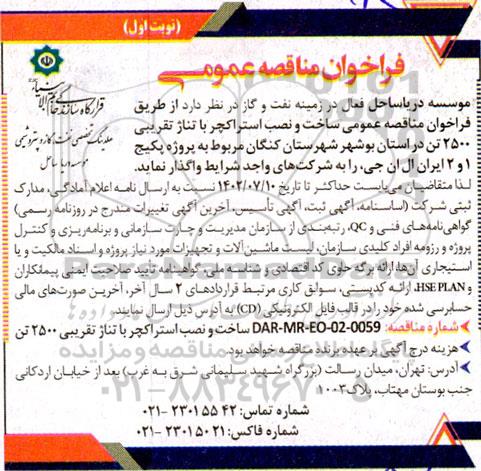 (نوبت اول)
فراخوان مناقصه عمومی
قرارگاه سازندگی خاتم الانبیاء
هلدینگ تخصصی نفت، گاز و پتروشیمی
موسسه دریا ساحل
موسسه دریاساحل فعال در زمینه نفت و گاز در نظر دارد از طریق
فراخوان مناقصه عمومی ساخت و نصب استراکچر با تناژ تقریبی
۲۵۰۰ تن در استان بوشهر شهرستان کنگان مربوط به پروژه پکیج
۱ و ۲ ایران ال ان جی، را به شرکت‌های واجد شرایط واگذار نماید.
لذا متقاضیان می‌بایست حداکثر تا تاریخ ۱۴۰۲/۰۷/۱۰ نسبت به ارسال نامه اعلام آمادگی، مدارک
ثبتی شرکت (اساسنامه، آگهی ثبت، آگهی تأسیس، آخرین آگهی تغییرات مندرج در روزنامه رسمی)
گواهی‌نامه‌های فنی و QC، رتبه‌بندی از سازمان مدیریت و چارت سازمانی و برنامه‌ریزی و کنترل
پروژه و رزومه افراد کلیدی سازمان، لیست ماشین‌آلات و تجهیزات مورد نیاز پروژه و اسناد مالکیت و یا
استیجاری آن‌ها، ارائه برگه حاوی کد اقتصادی و شناسه ملی، گواهینامه تایید صلاحیت ایمنی پیمانکاران
و HSE PLAN، ارائه کدپستی، سوابق کاری مرتبط قراردادهای ۲ سال آخر، آخرین صورت‌های مالی
حسابرسی شده خود را در قالب فایل الکترونیکی (CD) به آدرس ذیل ارسال نمایند.
شماره مناقصه: DAR-MR-EO-02-0059 ساخت و نصب استراکچر با تناژ تقریبی ۲۵۰۰ تن
هزینه درج آگهی بر عهده برنده مناقصه خواهد بود.
آدرس: تهران، میدان رسالت (بزرگراه شهید سلیمانی شرق به غرب) بعد از خیابان اردکانی
جنب بوستان مهتاب، پلاک ۱۰۰۳
شماره تماس: ۴۲ ۵۵ ۲۳۰۱ -۰۲۱
شماره فاکس: ۲۱ ۵۰ ۲۳۰۱ -۰۲۱
۰۲۱-۸۸۳۴۹۶۷۰-۵